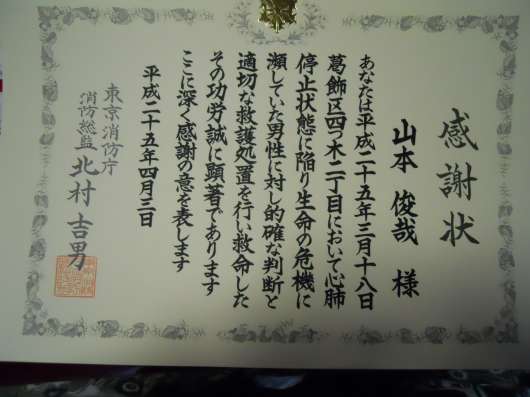 感謝状
山本 俊哉 様
あなたは平成二十五年三月十八日
葛飾区四つ木二丁目において心肺
停止状態に陥り生命の危機に
瀕していた男性に対し的確な判断と
適切な救護処置を行い救命した
その功労誠に顕著であります
ここに深く感謝の意を表します
平成二十五年四月三日
東京消防庁
消防総監 北村 吉男